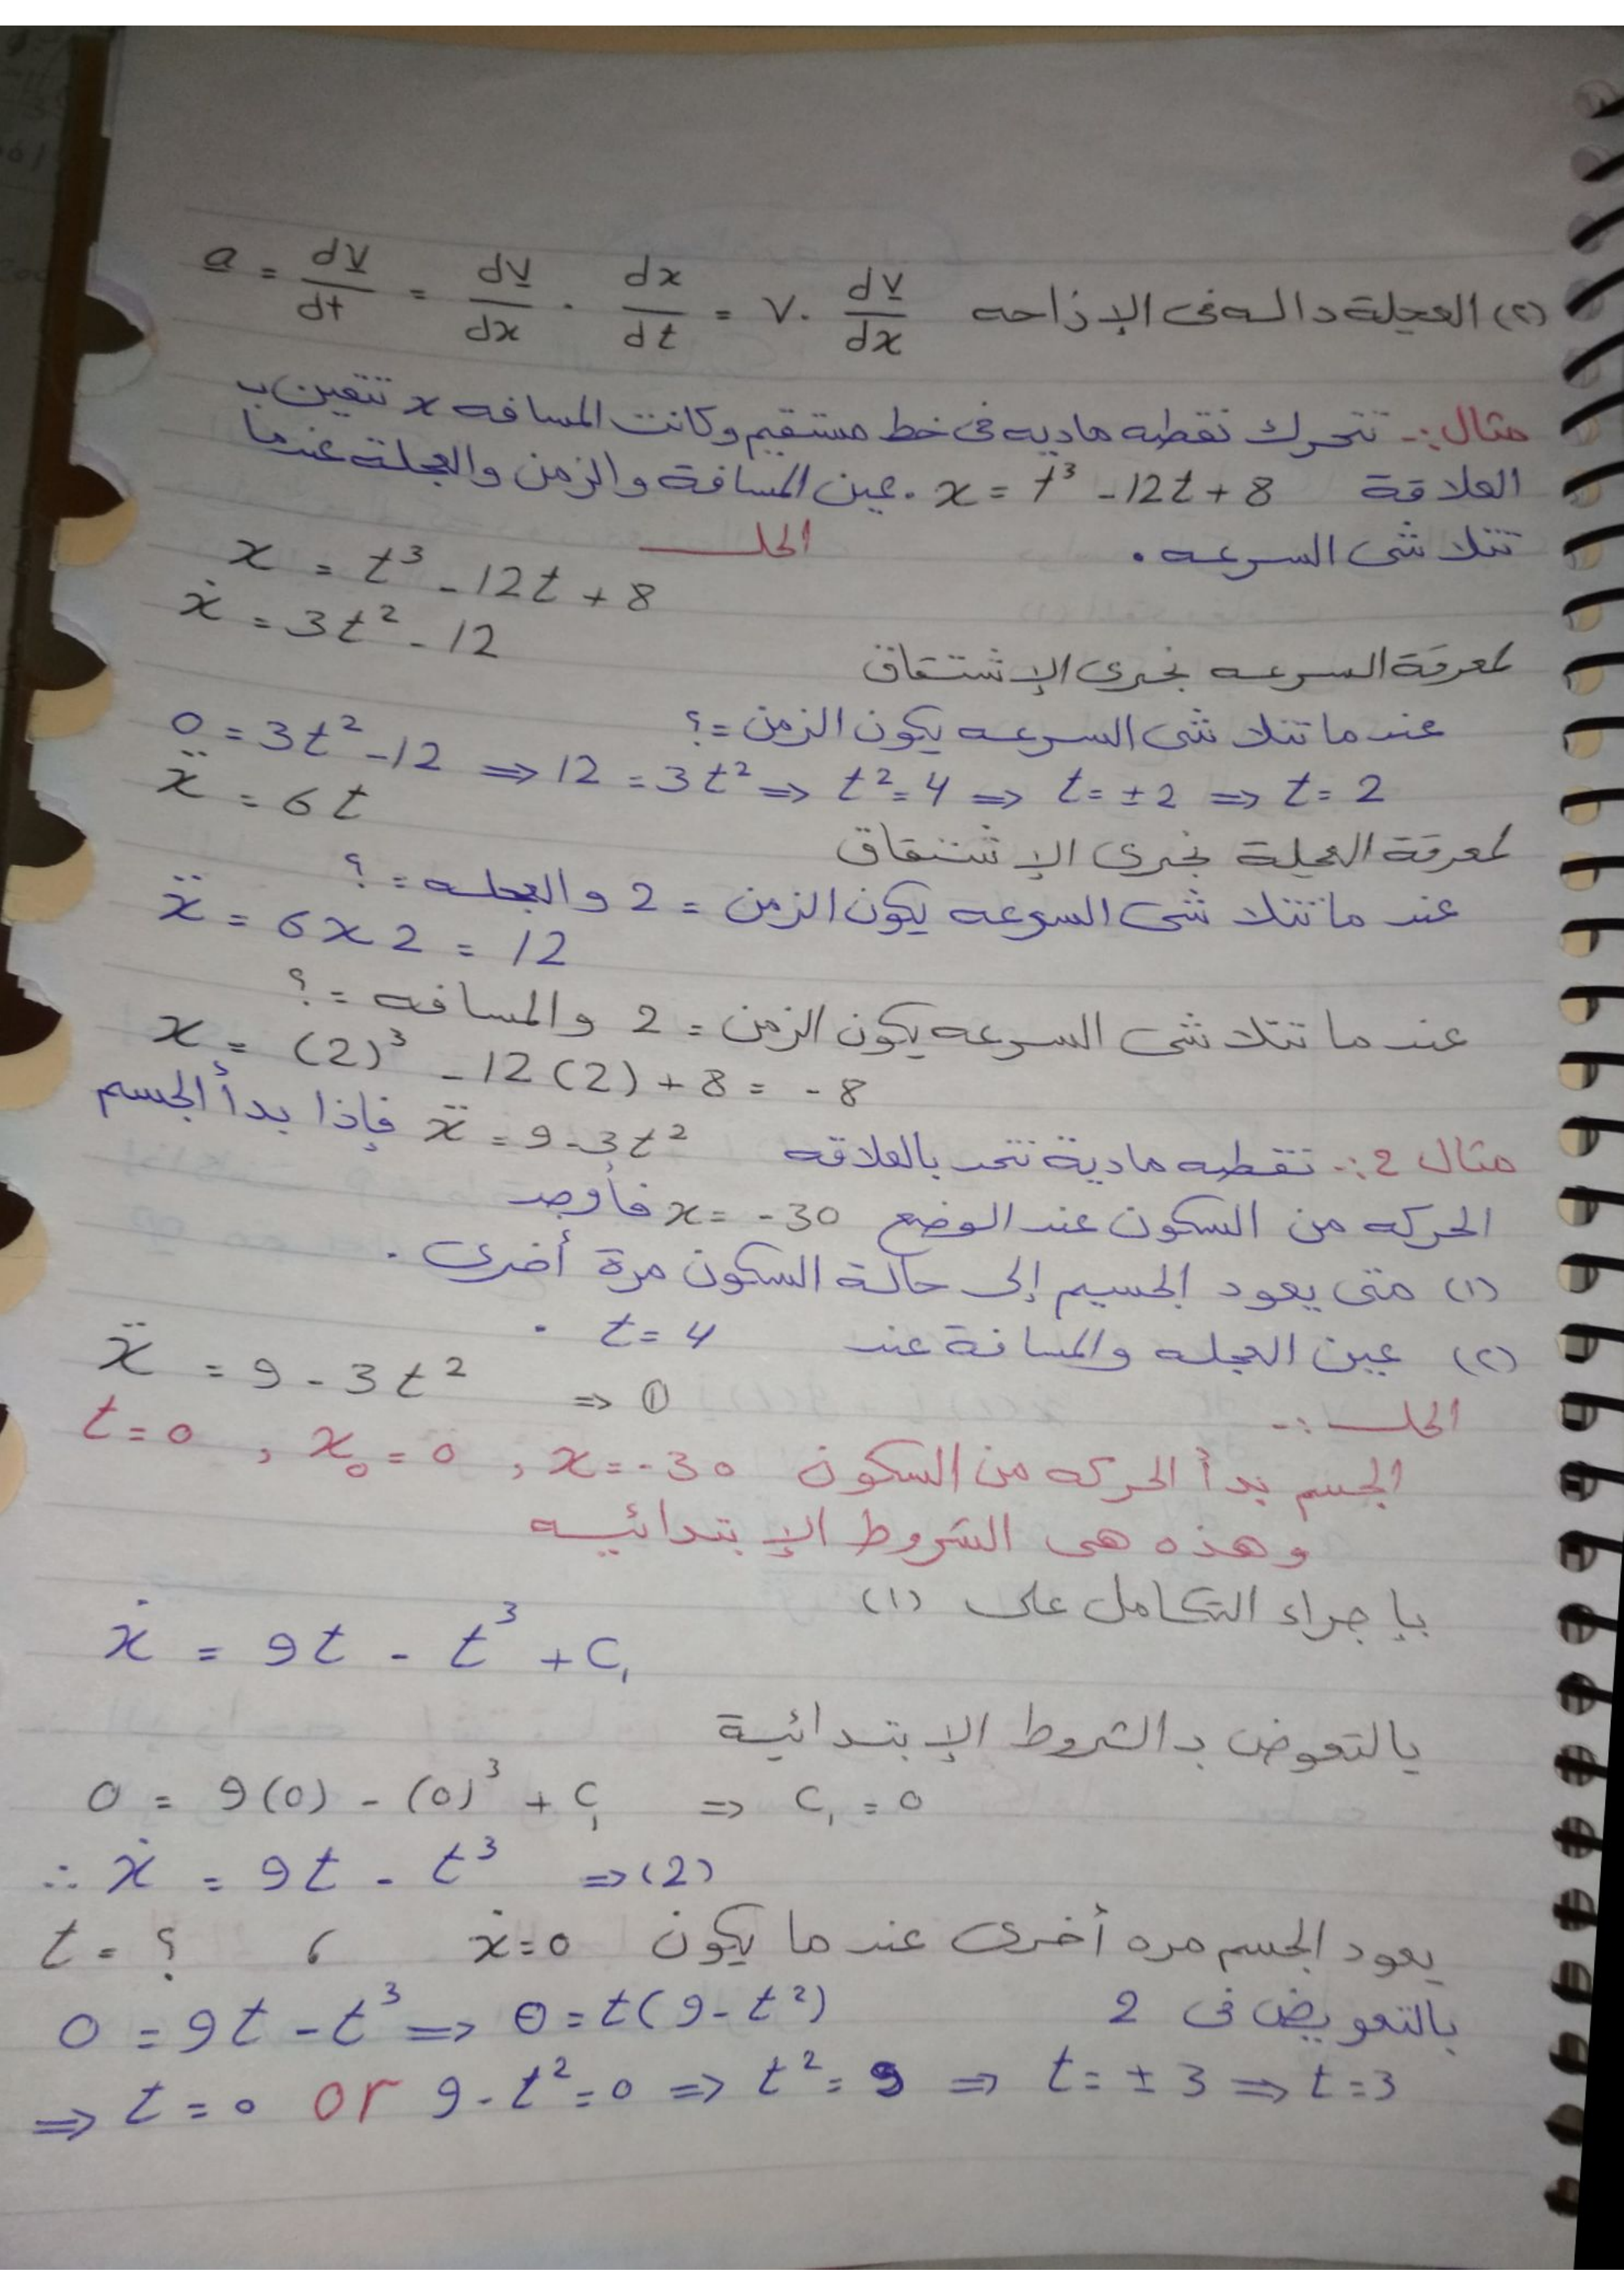 (٢) العجلة داله فى الإزاحه a = dv/dt = dv/dx . dx/dt = v. dv/dx
مثال :- تتحرك نقطه ماديه فى خط مستقيم وكانت المسافه x تتعين ب
العلاقة x = t³ - 12t + 8 . عين المسافة والزمن والعجلة عندما
تتلاشى السرعه .
الحل
x = t³ - 12t + 8
ẋ = 3t² - 12
لمعرفة السرعه نجرى الإشتقاق
عندما تتلاشى السرعه يكون الزمن = ؟
0 = 3t² - 12 ⇒ 12 = 3t² ⇒ t² = 4 ⇒ t = ± 2 ⇒ t = 2
ẍ = 6t
لمعرفة العجلة نجرى الإشتقاق
عند ما تتلاشى السرعه يكون الزمن = 2 والعجله = ؟
ẍ = 6 x 2 = 12
عند ما تتلاشى السرعه يكون الزمن = 2 والمسافه = ؟
x = (2)³ - 12(2) + 8 = - 8
مثال 2 :- نقطه مادية تتحد بالعلاقه ẍ = 9 - 3t² فإذا بدأ الجسم
الحركه من السكون عند الوضع x = -30 فأوجد
(١) متى يعود الجسيم إلى حالة السكون مرة أخرى .
(٢) عين العجله والمسافة عند t = 4 .
الحل :-
ẍ = 9 - 3t² ⇒ ①
الجسم بدأ الحركه من السكون t = 0 , x₀ = 0 , x = -30
وهذه هى الشروط الإبتدائيه
بإجراء التكامل على (١)
ẋ = 9t - t³ + C₁
يالتعوض بالشروط الإبتدائية
0 = 9(0) - (0)³ + C₁ ⇒ C₁ = 0
∴ ẋ = 9t - t³ ⇒ (2)
يعود الجسم مره أخرى عندما يكون ẋ = 0 ، t = ؟
بالتعويض فى 2
0 = 9t - t³ ⇒ 0 = t(9 - t²)
⇒ t = 0 or 9 - t² = 0 ⇒ t² = 9 ⇒ t = ± 3 ⇒ t = 3